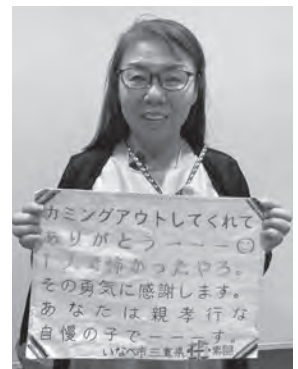 カミングアウトしてくれて
ありがとうーーー
怖かったやろ。
その勇気に感謝します。
あなたは親孝行な
自慢の子でーーーす
いなべ市 三重県